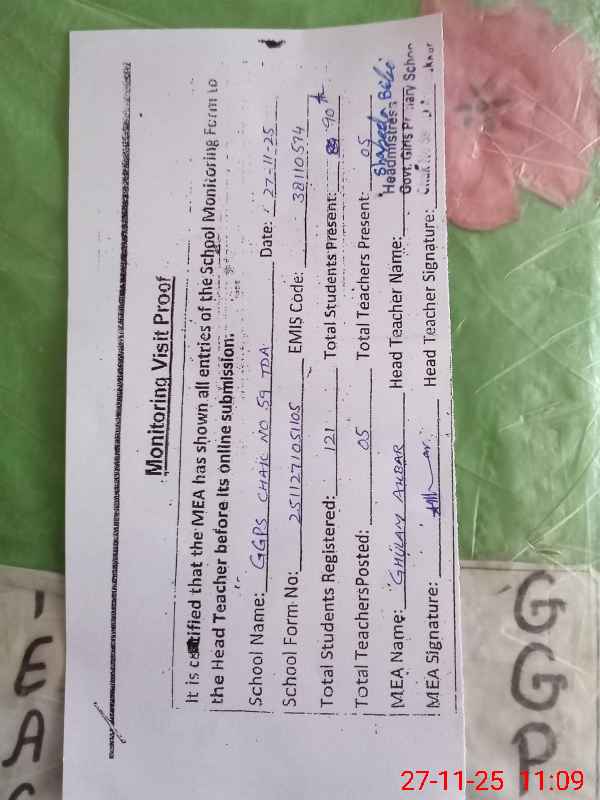 Monitoring Visit Proof
It is certified that the MEA has shown all entries of the School Monitoring Form to
the Head Teacher before its online submission.
School Name: GGPS CHAK NO 59 TDA Date: 27-11-25
School Form No: 2511271051105 EMIS Code: 38110574
Total Students Registered: 121 Total Students Present: 90
Total TeachersPosted: 05 Total Teachers Present: 05
MEA Name: GHULAM AKBAR Head Teacher Name: Shakeela Bibi
Headmistress
MEA Signature: Head Teacher Signature: Govt. Girls Primary School
EA
GGP
27-11-25 11:09